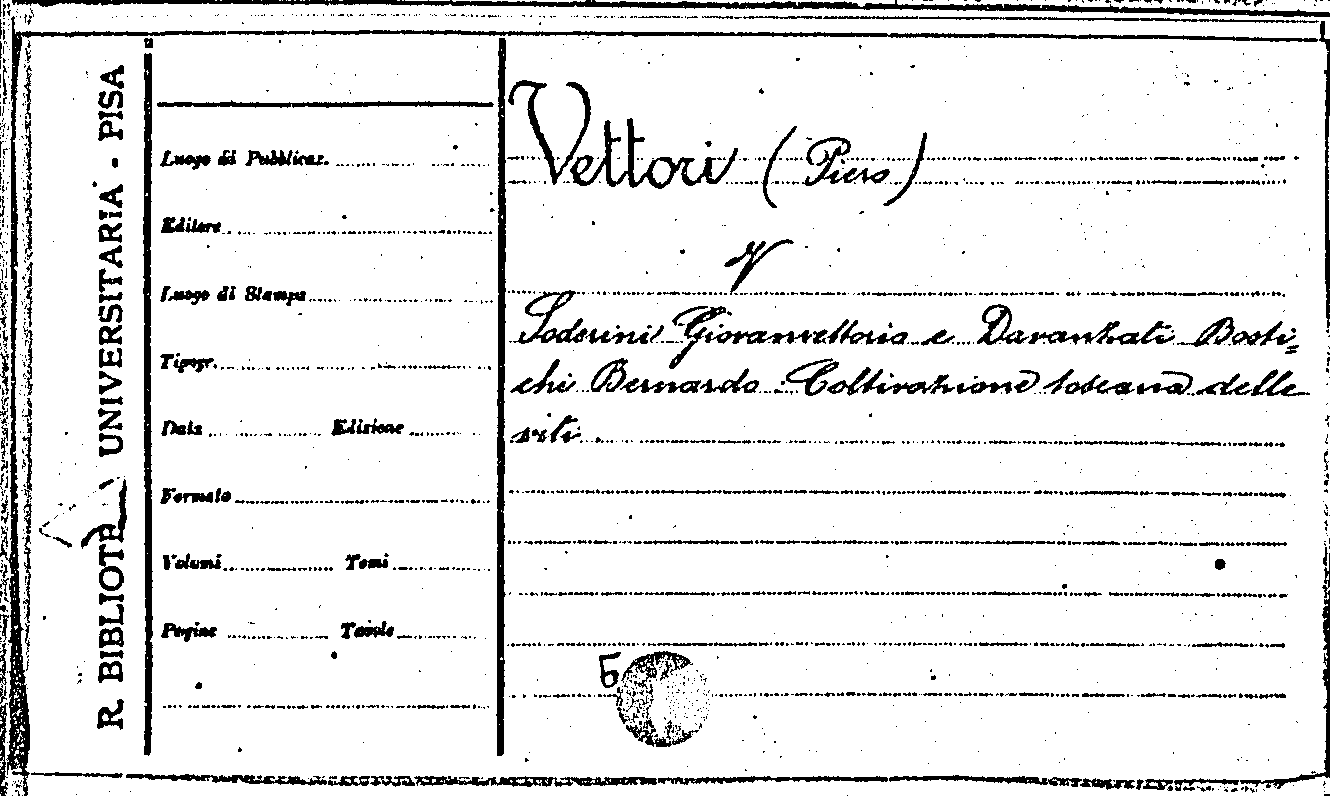 R. BIBLIOTE UNIVERSITARIA - PISA
Luogo di Pubblicaz.
Editore
Luogo di Stampa
Tipogr.
Data Edizione
Formato
Volumi Tomi
Pagine Tavole
Vettori (Piero)
V
Soderini Giovanvettorio e Davanzati Bosti=
chi Bernardo : Coltivazione toscana delle
viti.
5